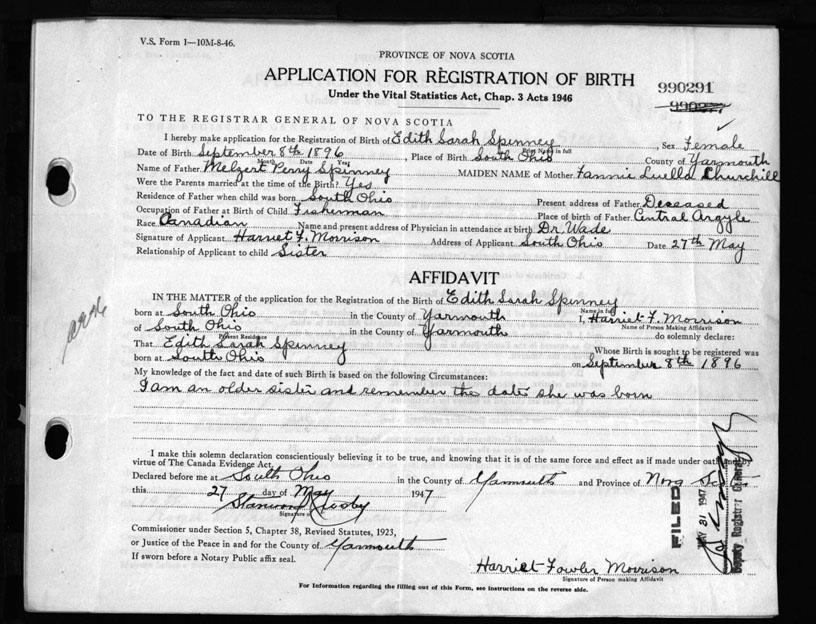 V.S. Form 1—10M-8-46.
PROVINCE OF NOVA SCOTIA
APPLICATION FOR REGISTRATION OF BIRTH
Under the Vital Statistics Act, Chap. 3 Acts 1946
990291
TO THE REGISTRAR GENERAL OF NOVA SCOTIA
I hereby make application for the Registration of Birth of Edith Sarah Spinney, Sex Female
Print Name in full
Date of Birth September 8th 1896, Place of Birth South Ohio County of Yarmouth
Month Date Year
Name of Father Melzert Perry Spinney MAIDEN NAME of Mother Fannie Luella Churchill
Were the Parents married at the time of the Birth? Yes
Residence of Father when child was born South Ohio Present address of Father Deceased
Occupation of Father at Birth of Child Fisherman Place of birth of Father Central Argyle
Race Canadian Name and present address of Physician in attendance at birth Dr. Wade
Signature of Applicant Harriet F. Morrison Address of Applicant South Ohio Date 27th May
Relationship of Applicant to child Sister
AFFIDAVIT
IN THE MATTER of the application for the Registration of the Birth of Edith Sarah Spinney
Name in full
born at South Ohio in the County of Yarmouth I, Harriet F. Morrison
Name of Person Making Affidavit
of South Ohio in the County of Yarmouth do solemnly declare:
Present Residence
That Edith Sarah Spinney Whose Birth is sought to be registered was
born at South Ohio on September 8th 1896
My knowledge of the fact and date of such Birth is based on the following Circumstances:
I am an older sister and remember the date she was born
I make this solemn declaration conscientiously believing it to be true, and knowing that it is of the same force and effect as if made under oath and by
virtue of The Canada Evidence Act.
Declared before me at South Ohio in the County of Yarmouth and Province of Nova Scotia
this 27 day of May 1947
Signature
Commissioner under Section 5, Chapter 38, Revised Statutes, 1923,
or Justice of the Peace in and for the County of Yarmouth
If sworn before a Notary Public affix seal.
FILED
MAY 31 1947
Deputy Registrar General
Harriet Fowler Morrison
Signature of Person making Affidavit
For Information regarding the filling out of this Form, see instructions on the reverse side.